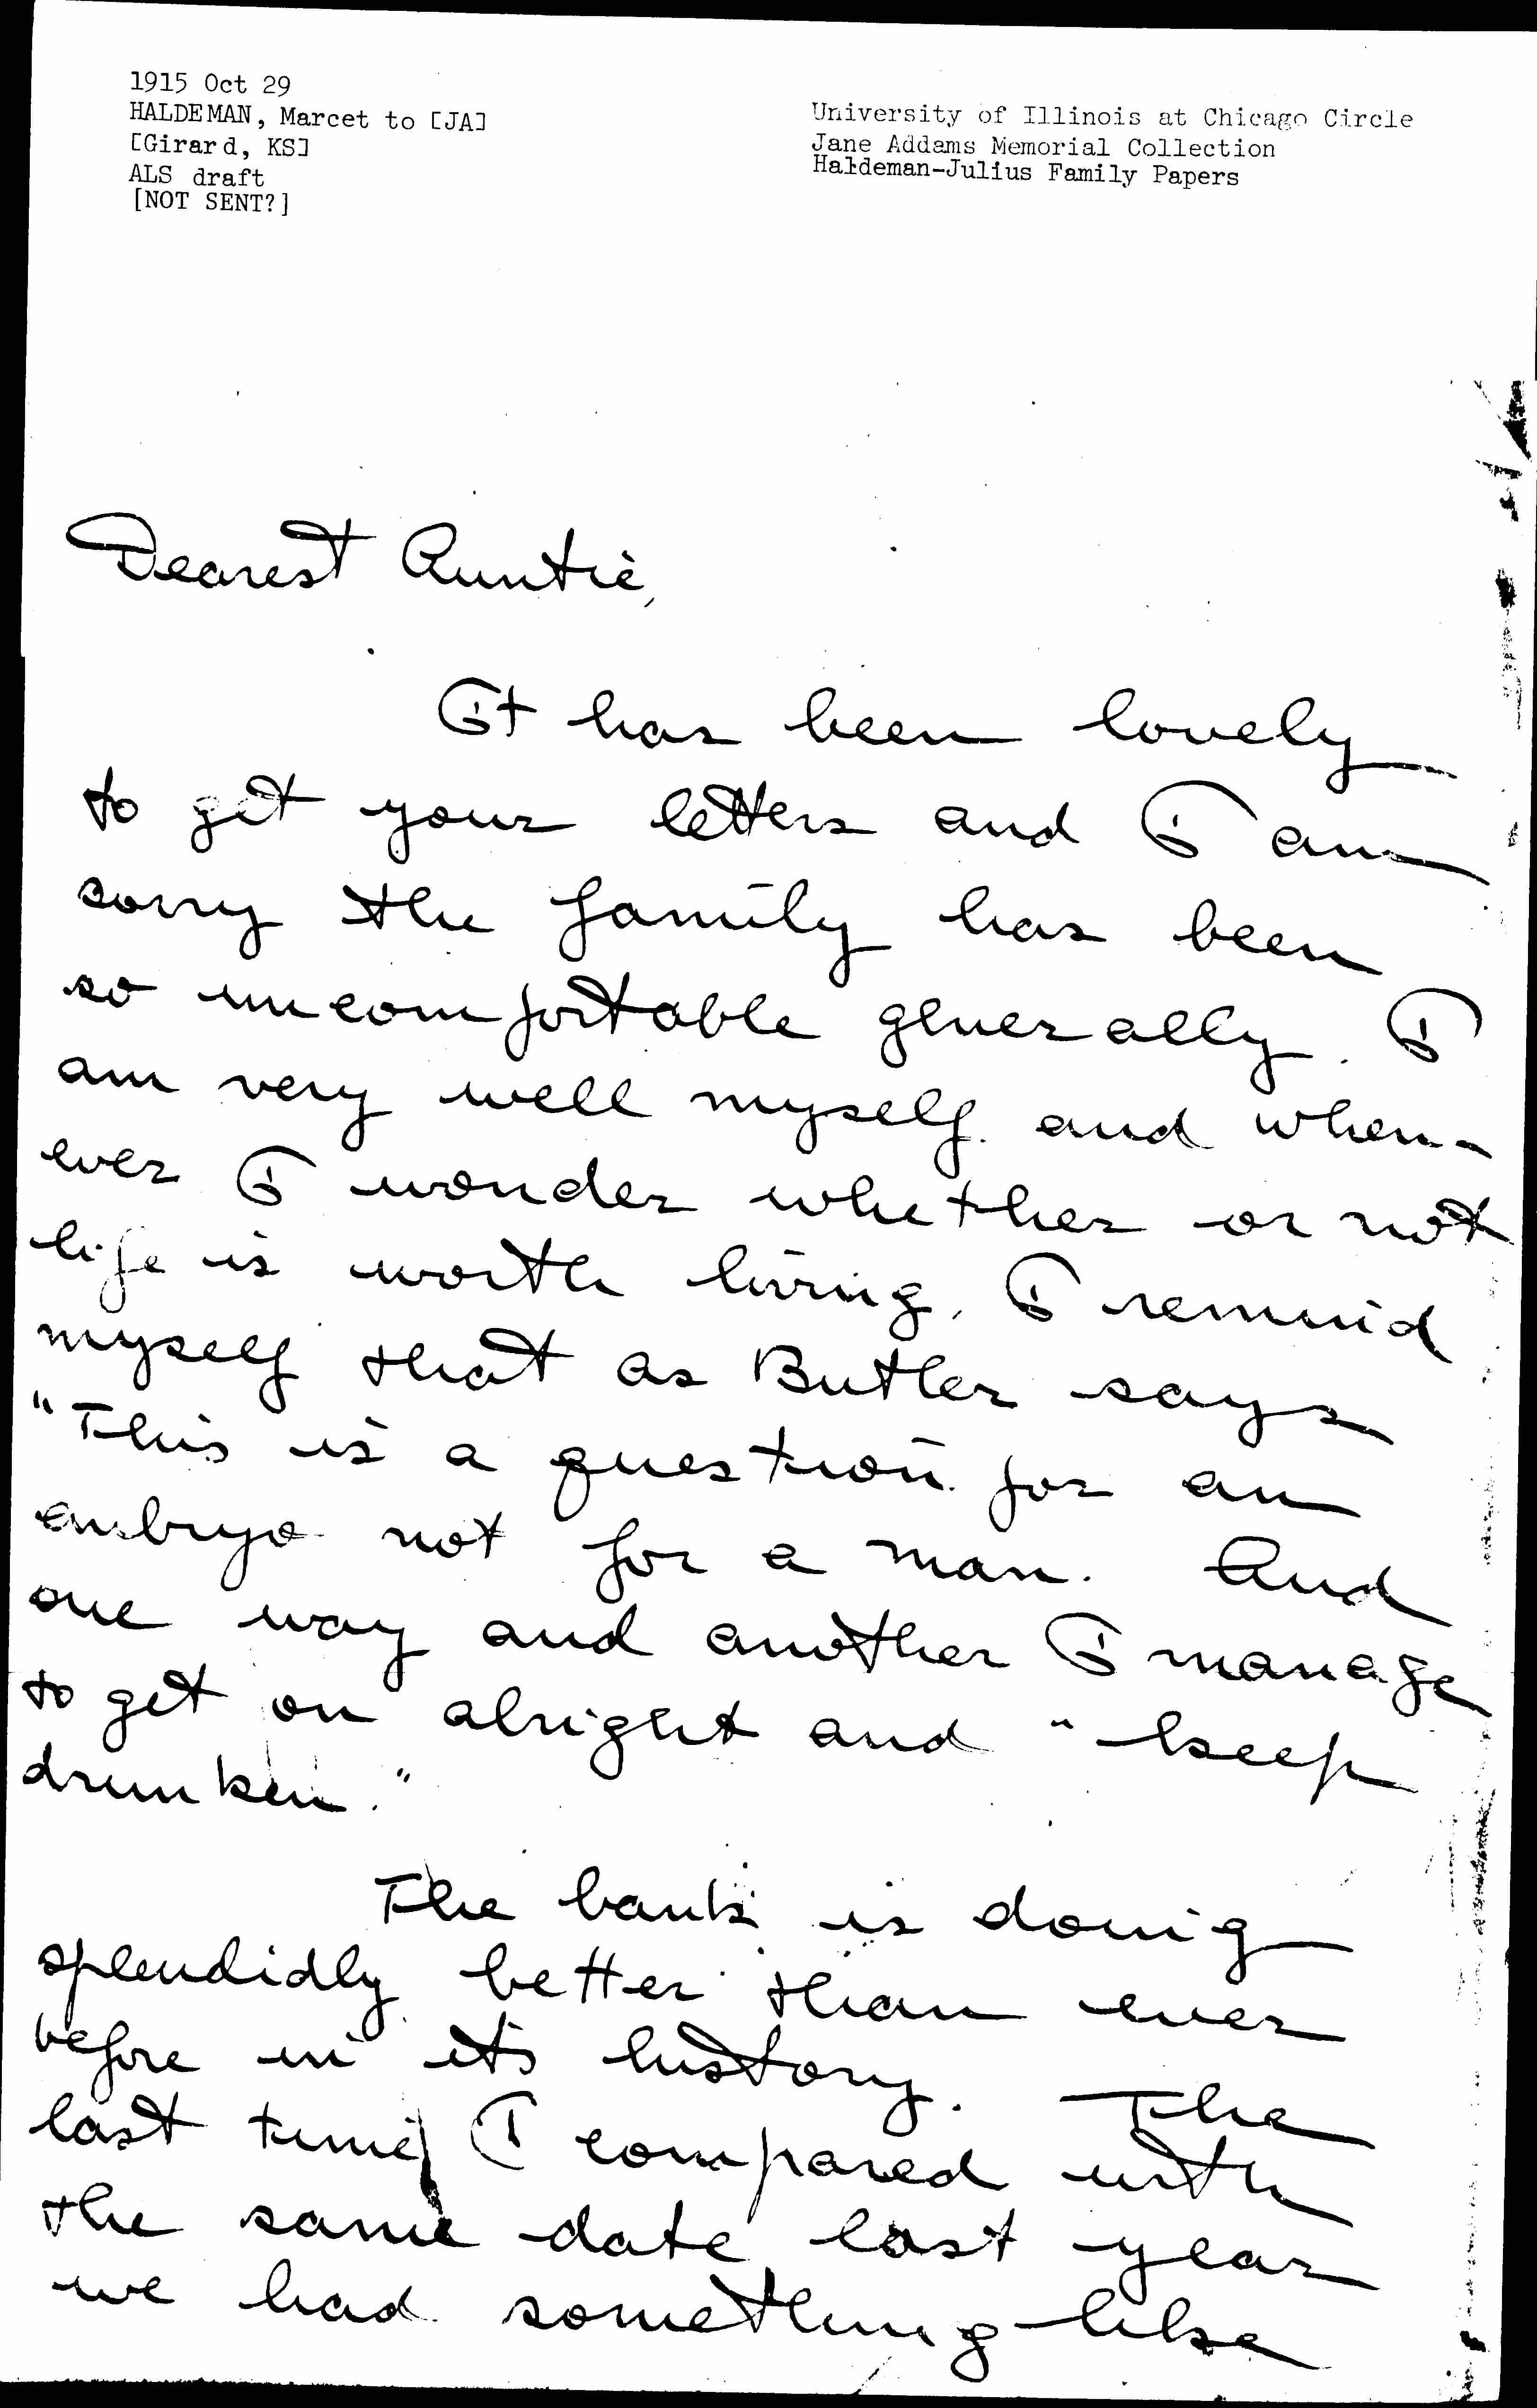 1915 Oct 29
HALDEMAN, Marcet to [JA]
[Girard, KS]
ALS draft
[NOT SENT?]
University of Illinois at Chicago Circle
Jane Addams Memorial Collection
Haldeman-Julius Family Papers
Dearest Auntie,
It has been lovely
to get your letters and I am
sorry the family has been
so uncomfortable generally. I
am very well myself and when-
ever I wonder whether or not
life is worth living, I remind
myself that as Butler says
"This is a question for an
embryo not for a man. And
one way and another I manage
to get on alright and "keep
drunken."
The bank is doing
splendidly better than ever
before in its history. The
last time I compared with
the same date last year
we had something like